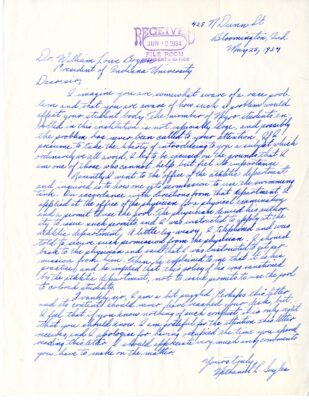 RECEIVED
JUN 10 1934
FILE ROOM
PRESIDENT'S OFFICE
425 N Dunn St
Bloomington, Ind
May 23, 1934
Dr. William Lowe Bryan
President of Indiana University
Dear sir,
I imagine you are somewhat aware of a race prob-
lem and that you are aware of how such a problem would
affect your student body. The number of Negro students en-
rolled in this institution is not unusually large, and possibly
the problem has never been called to your attention. If I
presume to take the liberty of introducing you to a subject which
ordinarily we all avoid, I beg to be excused on the grounds that I
am one of those who cannot help but feel its importance.
Recently I went to the office of the athletic department
and inquired as to how to get permission to use the swimming
tank. In accordance with directions from that department I
applied at the office of the physician for a physical examination
and a permit to use the pool. The physician denied his author-
ity to issue such permits and I was instructed to apply at the
athletic department. A little leg-weary, I telephoned and was
told to secure such permission from the physician. I phoned
back to the physician and
mission from him. Then he explained to me that it is his
practice, and he implied that this policy of his was sanctioned
by the athletic department, not to issue permits to use the pool
to colored students.
I am not angry, as I am hurt. Perhaps this letter
and its contents should never have reached your desk, but
I feel that if you know nothing of such conduct it is only right
that you should know. I am grateful for the attention this letter
receives, and I apologize for having occupied the time you spend
reading this letter. I should appreciate very much any comments
you have to make on the matter.
Yours truly,
Nathaniel L.